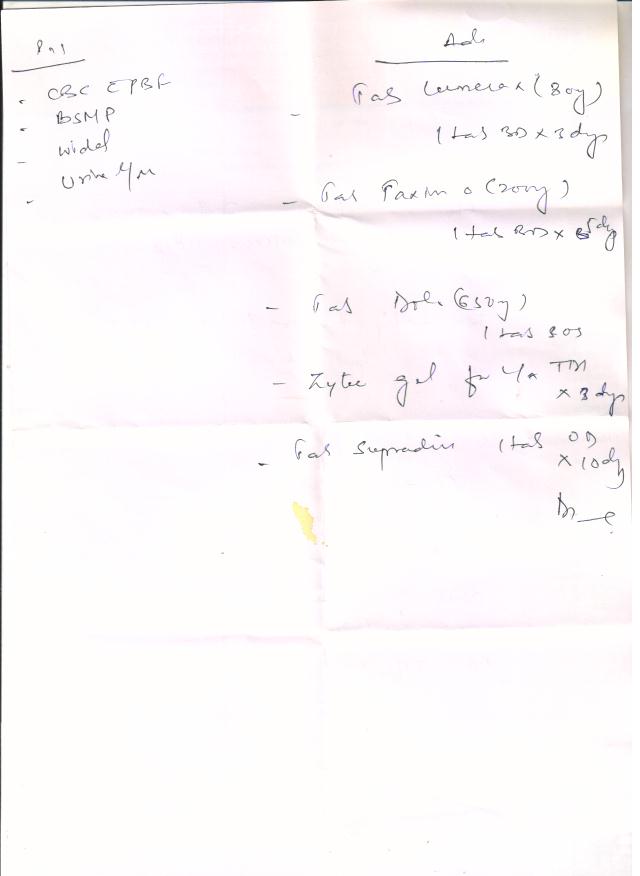 Inv
CBC C PBF
BSMP
Widal
Urine R/M
Adv
Tab Lumerax (80mg)
1 tab BD x 3 days
Tab Taxim O (200mg)
1 tab BD x 5 days
Tab Dolo (650mg)
1 tab SOS
Zytee gel for L/A TDS
x 3 days
Tab Supradin 1 tab OD
x 10 days